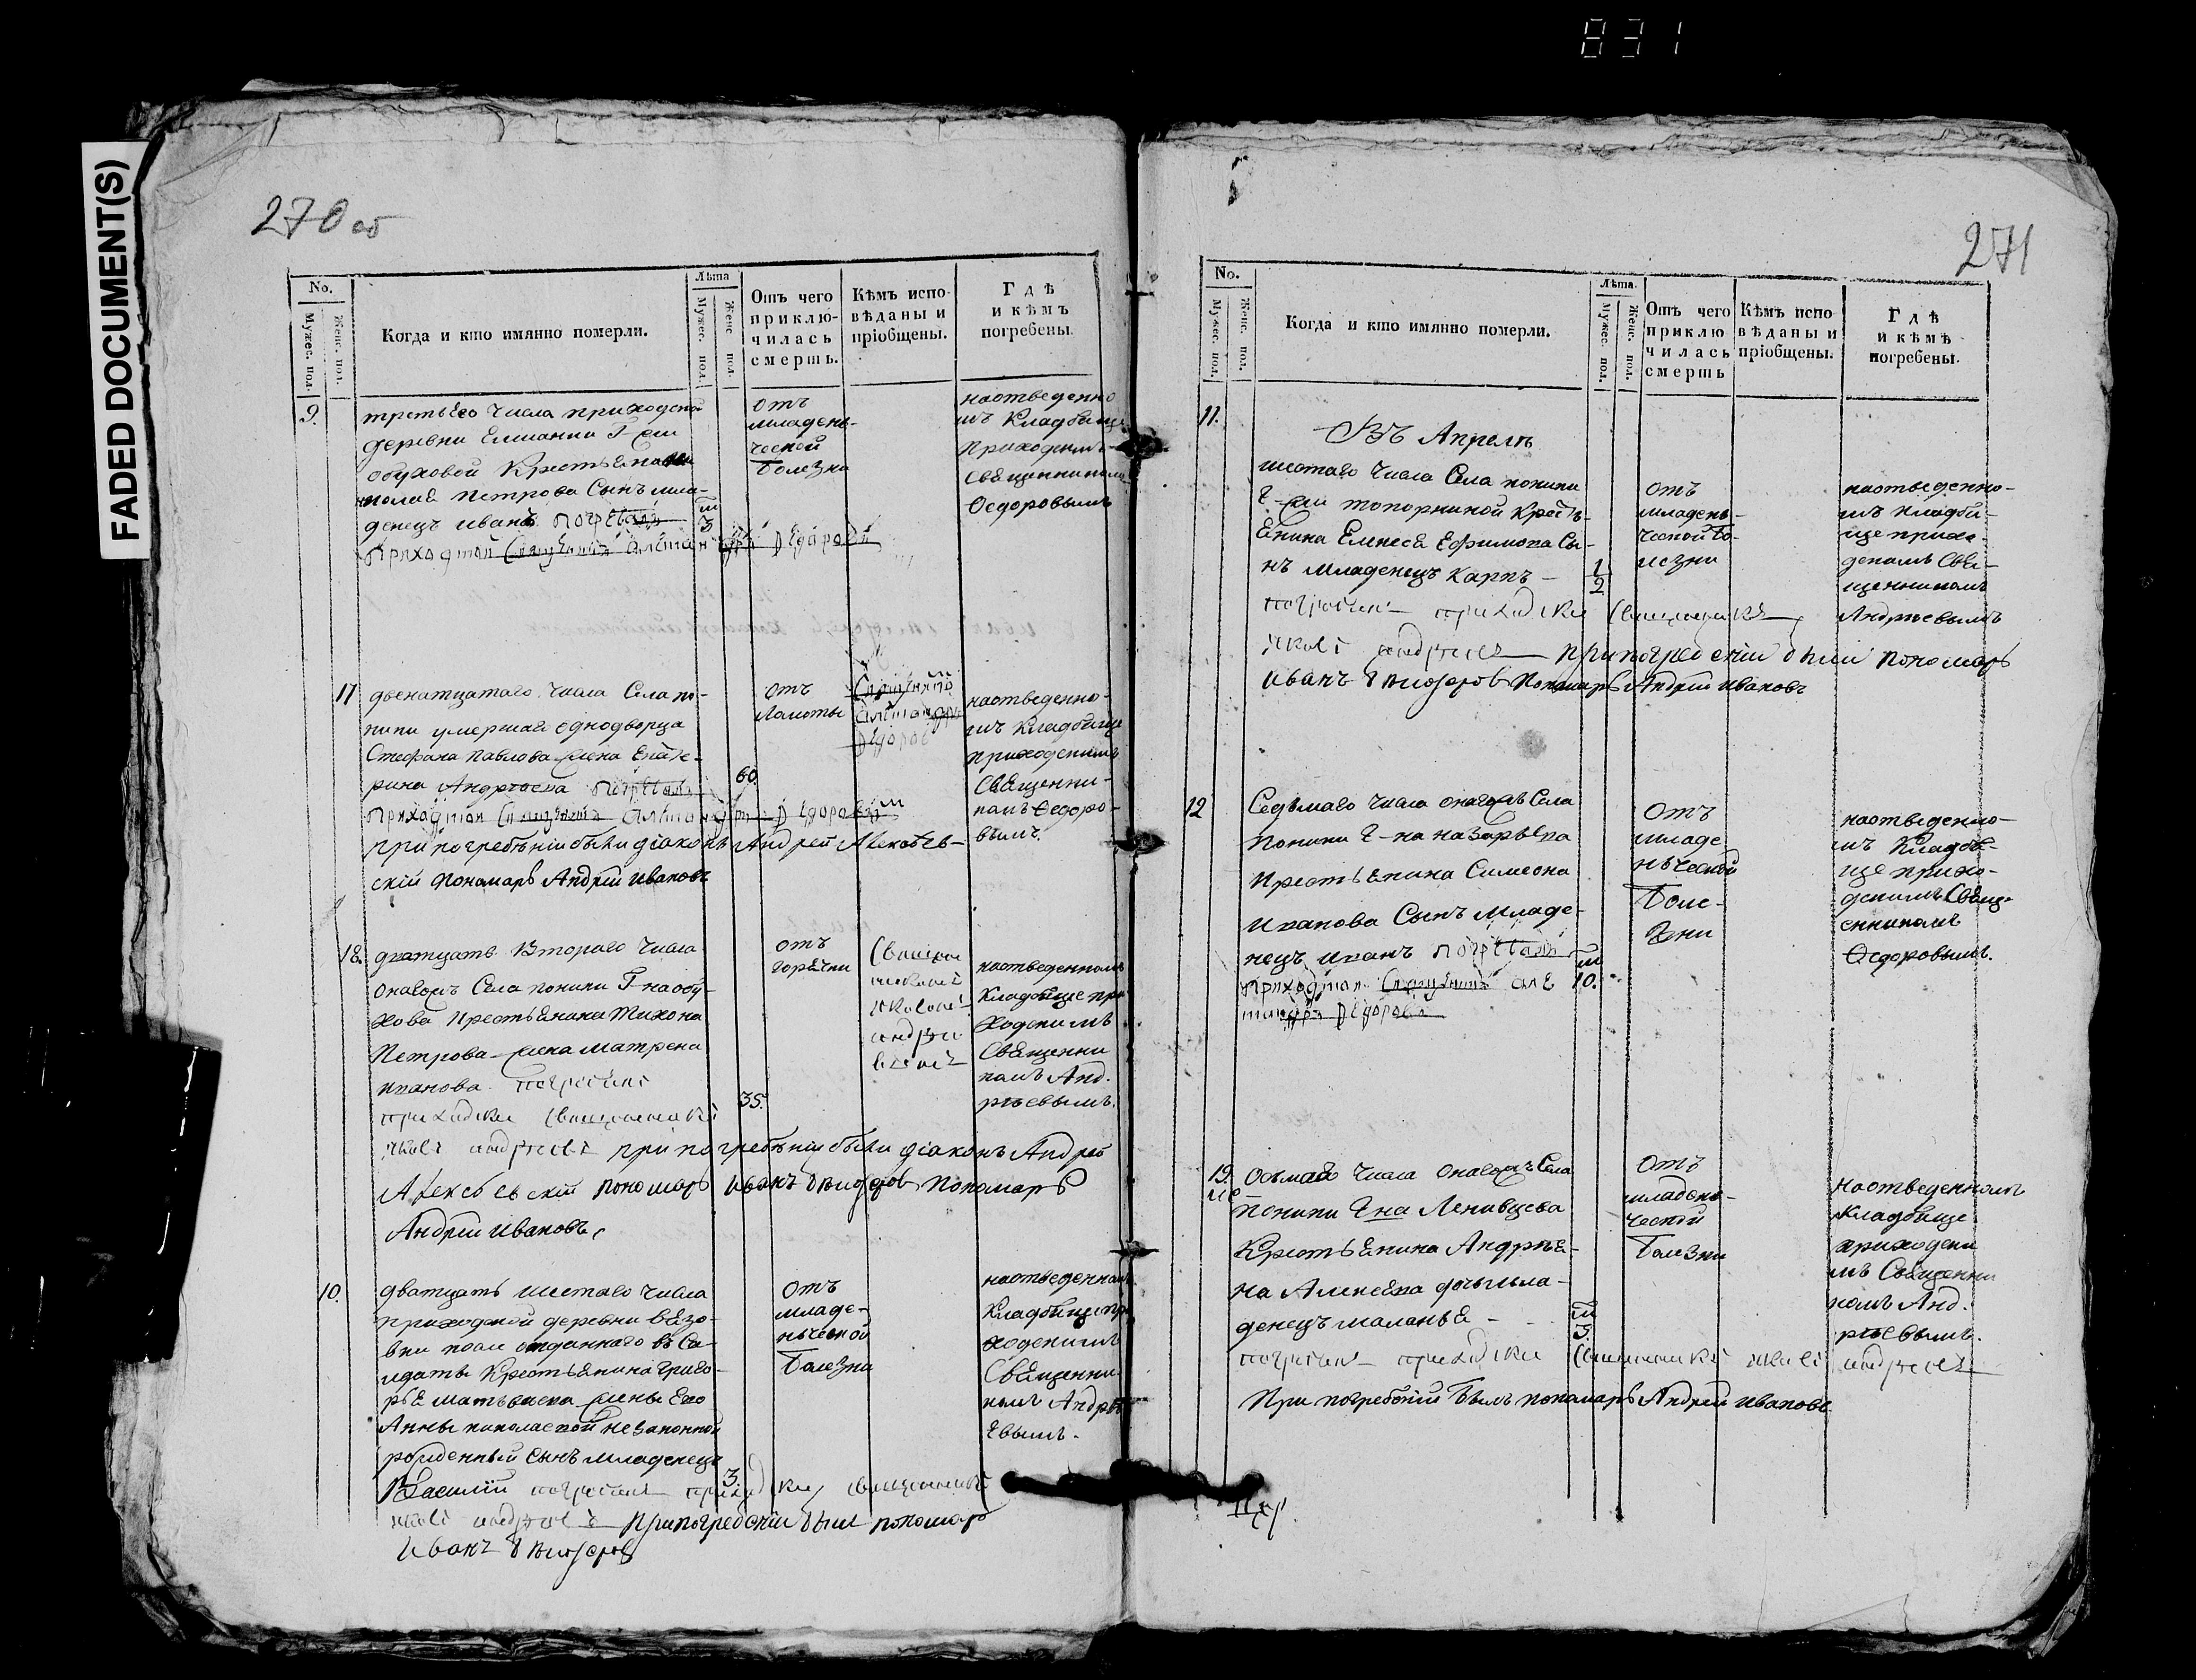 831
FADED DOCUMENT(S)
270 об
No.
Мужес. пол.
Женс. пол.
Когда и кто имянно померли.
Лѣта
Мужес. пол.
Женс. пол.
Отъ чего
приклю-
чилась
смерть.
Кѣмъ испо-
вѣданы и
пріобщены.
Гдѣ
и кѣмъ
погребены.
9.
третьего числа приходской
деревни Г-жи
Обуховой крестьянина
Петрова сынъ мла-
денецъ иванъ погребалъ
м
3
приходской Священникъ Александръ Федоровъ
отъ
младень-
ческой
болезни
на отведенно
мъ кладбище
приходскимъ
священникомъ
Ѳедоровымъ
17
двенатцатаго числа Села по-
ники умершаго однодворца
Стефана Павлова жена Екате-
рина Андреева погребалъ
60.
приходской Священникъ Александръ Федоровъ
при погребѣніи были діаконъ Андрей Алексѣев-
скій пономарь Андрей Ивановъ
отъ
ломоты
Священико
Александро
Федоров
на отведенно-
мъ кладбище
приходскимъ
Священни-
комъ Ѳедоро-
вымъ.
18.
дватцать втораго числа
онагожъ Села поники Г-на Обу-
хова крестьянина Тихона
Петрова жена Матрена
иванова погребалъ
35.
приходской священникъ
Яковъ андреевъ при погребѣніи были діаконъ Андрей
Алексѣевскій пономарь Иванъ Пономарь
Андрей Ивановъ
отъ
горячки
Священ
никомъ
Яковомъ
андре
евымъ
на отведенномъ
кладбище при
ходскимъ
Священни
комъ Анд-
реевымъ.
10.
дватцать шестаго числа
приходской деревни вязо-
вки отданнаго въ Са-
лдаты крестьянина Григо-
рья матвеева жены его
Анны николаевой незаконно
рожденный сынъ младенецъ
3.
Василій погребалъ приходской священникъ
Яковъ андреевъ при погребеніи были пономарь
Иванъ
отъ
младе-
нческой
болезни
на отведенномъ
кладбище при
ходскимъ
Священни
комъ Андре
евымъ.
271
No.
Мужес. пол.
Женс. пол.
Когда и кто имянно померли.
Лѣта.
Мужес. пол.
Женс. пол.
Отъ чего
приклю
чилась
смерть
Кѣмъ испо
вѣданы и
пріобщены.
Гдѣ
и кѣмъ
погребены.
11.
Въ Апрелѣ
шестаго числа Села поники
Г-жи топорниной крест-
янина Елисея Ефимова сы-
нъ младенецъ Карпъ
1
2
погребалъ приходской священникъ
Яковъ андреевъ при погребеніи были пономарь
Иванъ Пономарь Андрей Ивановъ
отъ
младень-
ческой бо-
лезни
на отведенно-
мъ кладби-
ще прихо-
дскимъ Свя-
щенникомъ
Андреевымъ
12
Седьмаго числа онагожъ Села
поники Г-на назарьева
крестьянина Симеона
Иванова Сынъ младе-
нецъ иванъ погребалъ
м
10.
приходской Священникъ але
ксандръ Федоровъ
отъ
младе
нческой
боле-
зни
на отведенно-
мъ кладби-
ще прихо-
дскимъ Свящ-
енникомъ
Ѳедоровымъ.
19.
осьмаго числа онагожъ Села
поники Г-на Ленивцева
крестьянина Андреяна
Алексеева дочь мла-
денецъ маланья
м
3.
погребалъ приходской Священникъ яковъ андреевъ
При погребеніи былъ пономарь Андрей Ивановъ
отъ
младень-
ческой
болезни
на отведенномъ
кладбище
приходски
мъ Священни
комъ Анд-
реевымъ.